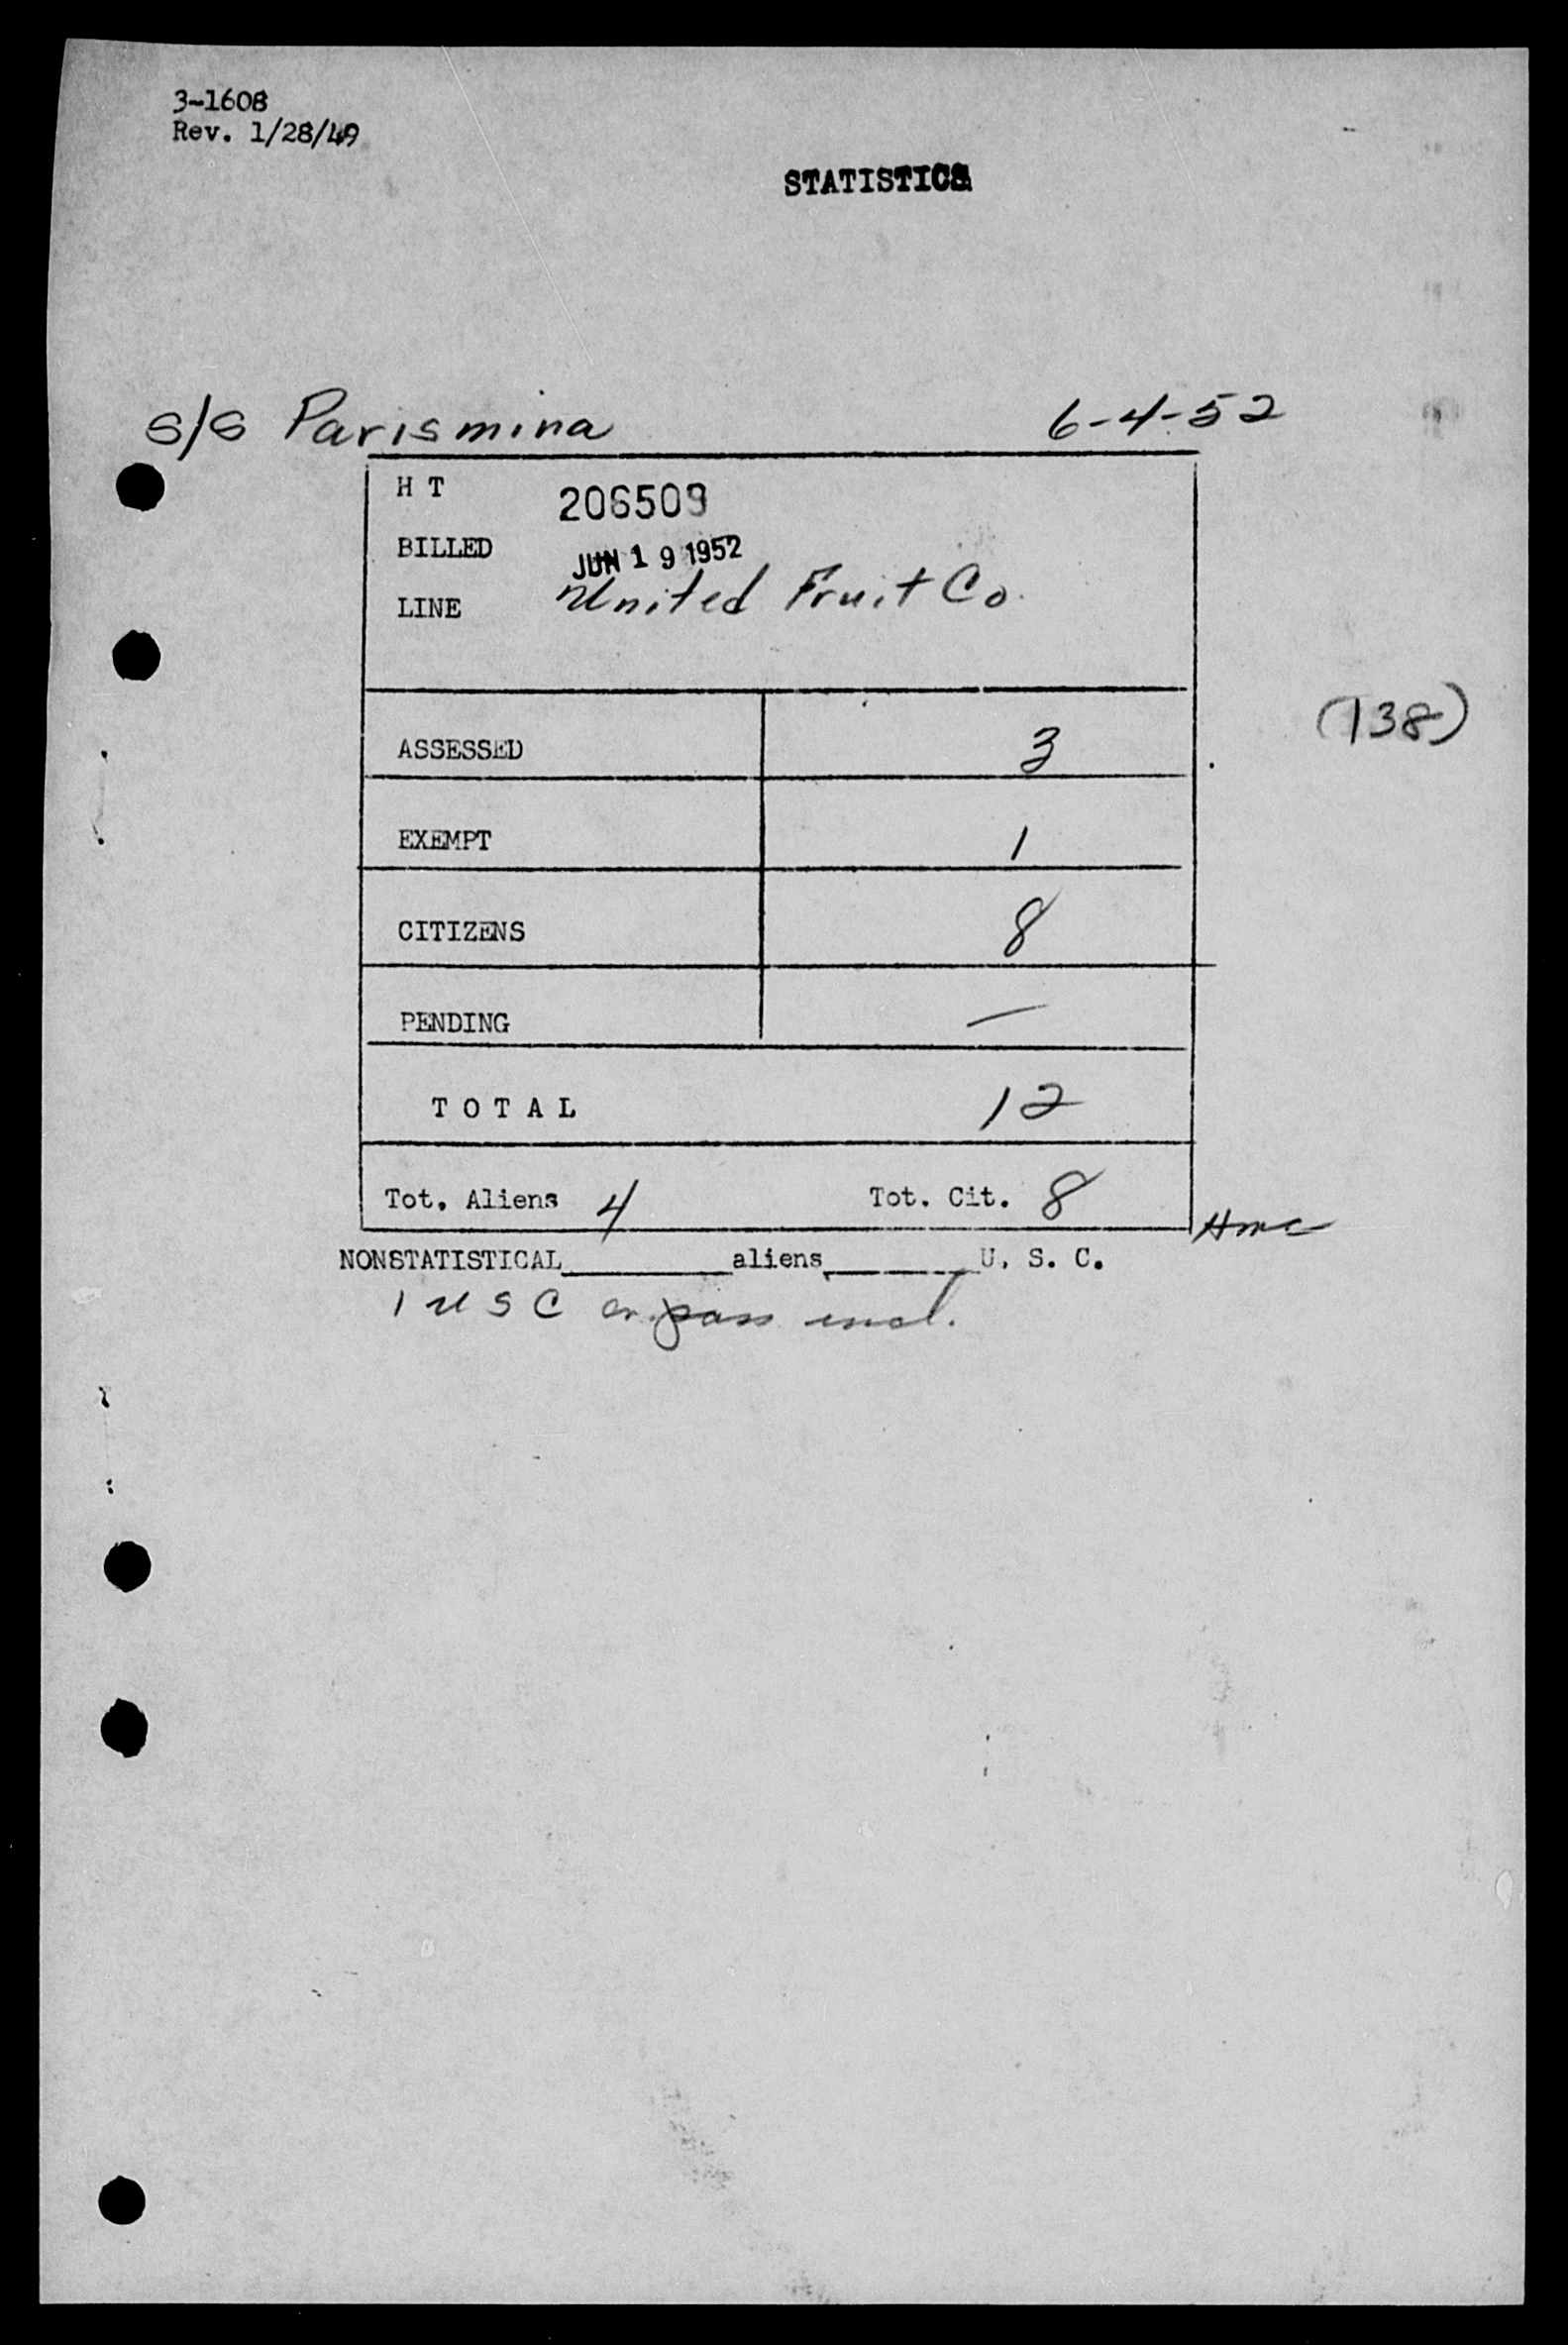 3-1608
Rev. 1/28/49
STATISTICS
S/S Parismina 6-4-52
H T 206509
BILLED JUN 19 1952
LINE United Fruit Co.
(138)
ASSESSED 3
EXEMPT 1
CITIZENS 8
PENDING —
TOTAL 12
Tot. Aliens 4 Tot. Cit. 8
NONSTATISTICAL aliens U. S. C.
1 USC pass incl.